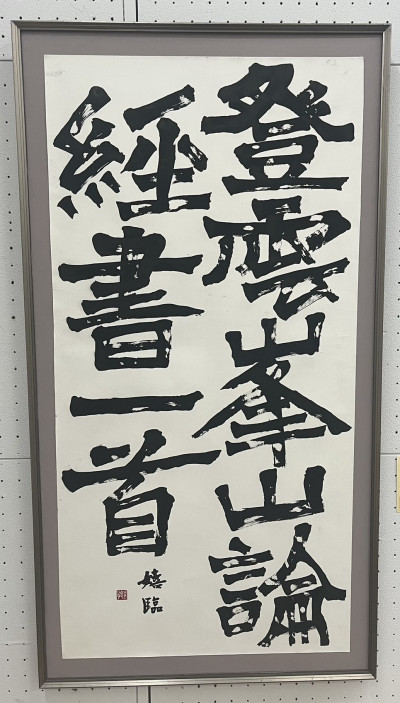 登雲峯山論
經書一首
嬉臨